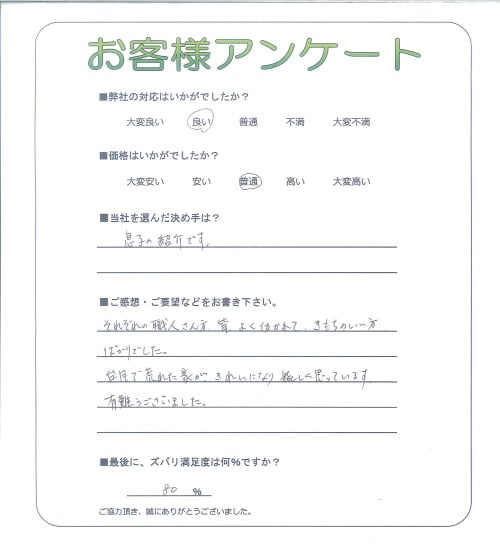 お客様アンケート
■弊社の対応はいかがでしたか？
大変良い 良い 普通 不満 大変不満
■価格はいかがでしたか？
大変安い 安い 普通 高い 大変高い
■当社を選んだ決め手は？
息子の紹介です。
■ご感想・ご要望などをお書き下さい。
それぞれの職人さん方、皆 よく仂かれて、きもちのいい方
ばかりでした。
台風で荒れた家が きれいになり 嬉しく思っています。
有難うございました。
■最後に、ズバリ満足度は何%ですか？
80 %
ご協力頂き、誠にありがとうございました。